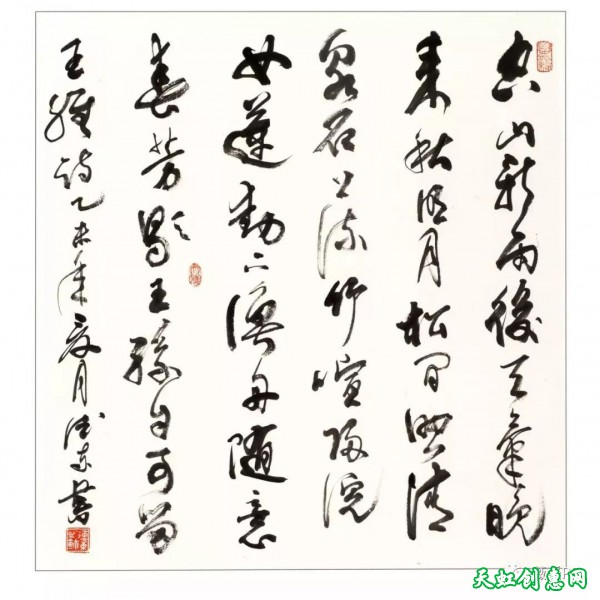 空山新雨後天氣晚
来秋明月松间照清
泉石上流竹喧归浣
女蓮動下漁舟随意
春芳歇王孫自可留
王維詩乙未年夏月書
天虹创意网